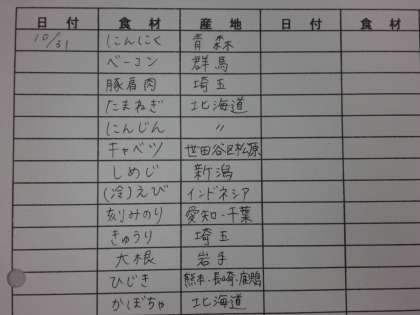 日付 食材 産地 日付 食材
10/31 にんにく 青森
ベーコン 群馬
豚肩肉 埼玉
たまねぎ 北海道
にんじん 〃
キャベツ 世田谷区松原
しめじ 新潟
(冷)えび インドネシア
刻みのり 愛知・千葉
きゅうり 埼玉
大根 岩手
ひじき 熊本・長崎・
かぼちゃ 北海道